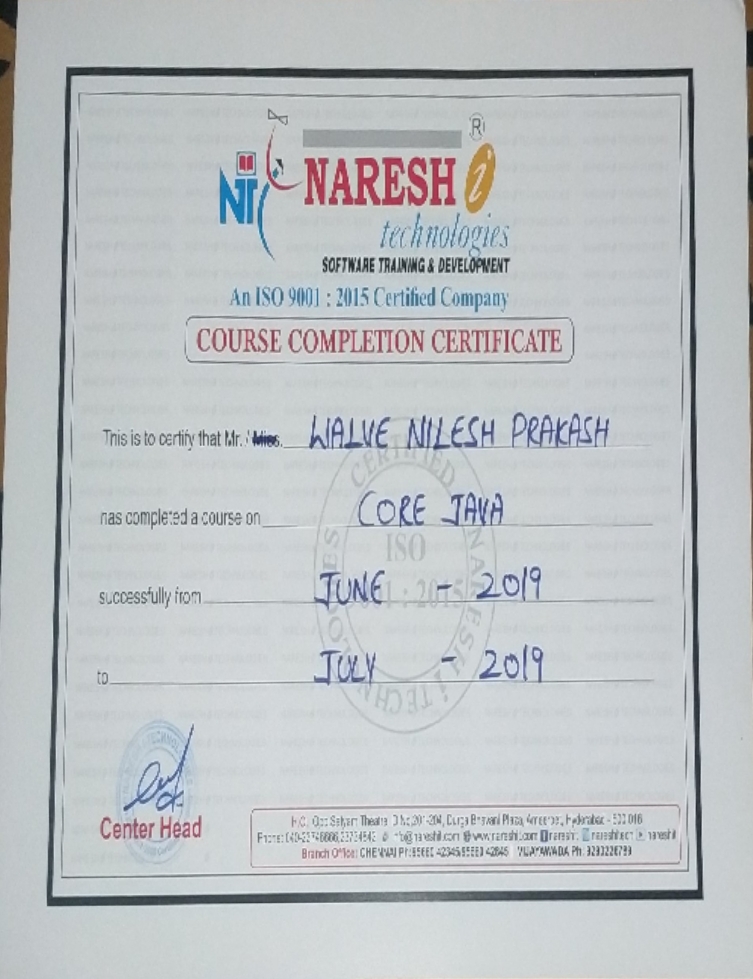 ®
NT
NARESH i
technologies
SOFTWARE TRAINING & DEVELOPMENT
An ISO 9001 : 2015 Certified Company
COURSE COMPLETION CERTIFICATE
This is to certify that Mr. / Miss. WALVE NILESH PRAKASH
has completed a course on CORE JAVA
successfully from JUNE - 2019
to JULY - 2019
CERTIFIED
ISO
9001 : 2015
NARESH i TECHNOLOGIES
Center Head
H.O.: Opp. Satyam Theatre, D.No.201-204, Durga Bhavani Plaza, Ameerpet, Hyderabad - 500 016
Phone: 040-23746666, info@nareshit.com www.nareshit.com nareshit nareshitech nareshit
Branch Office: CHENNAI VIJAYAWADA Ph: